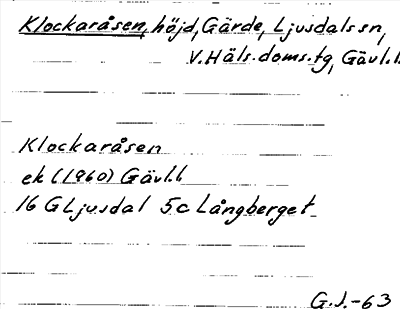 Klockaråsen, höjd, Gärde, Ljusdals sn,
V. Häls. doms.tg, Gävl.l.
Klockaråsen
ek (1960) Gävl.l
16 G Ljusdal 5c Långberget
G.J.-63